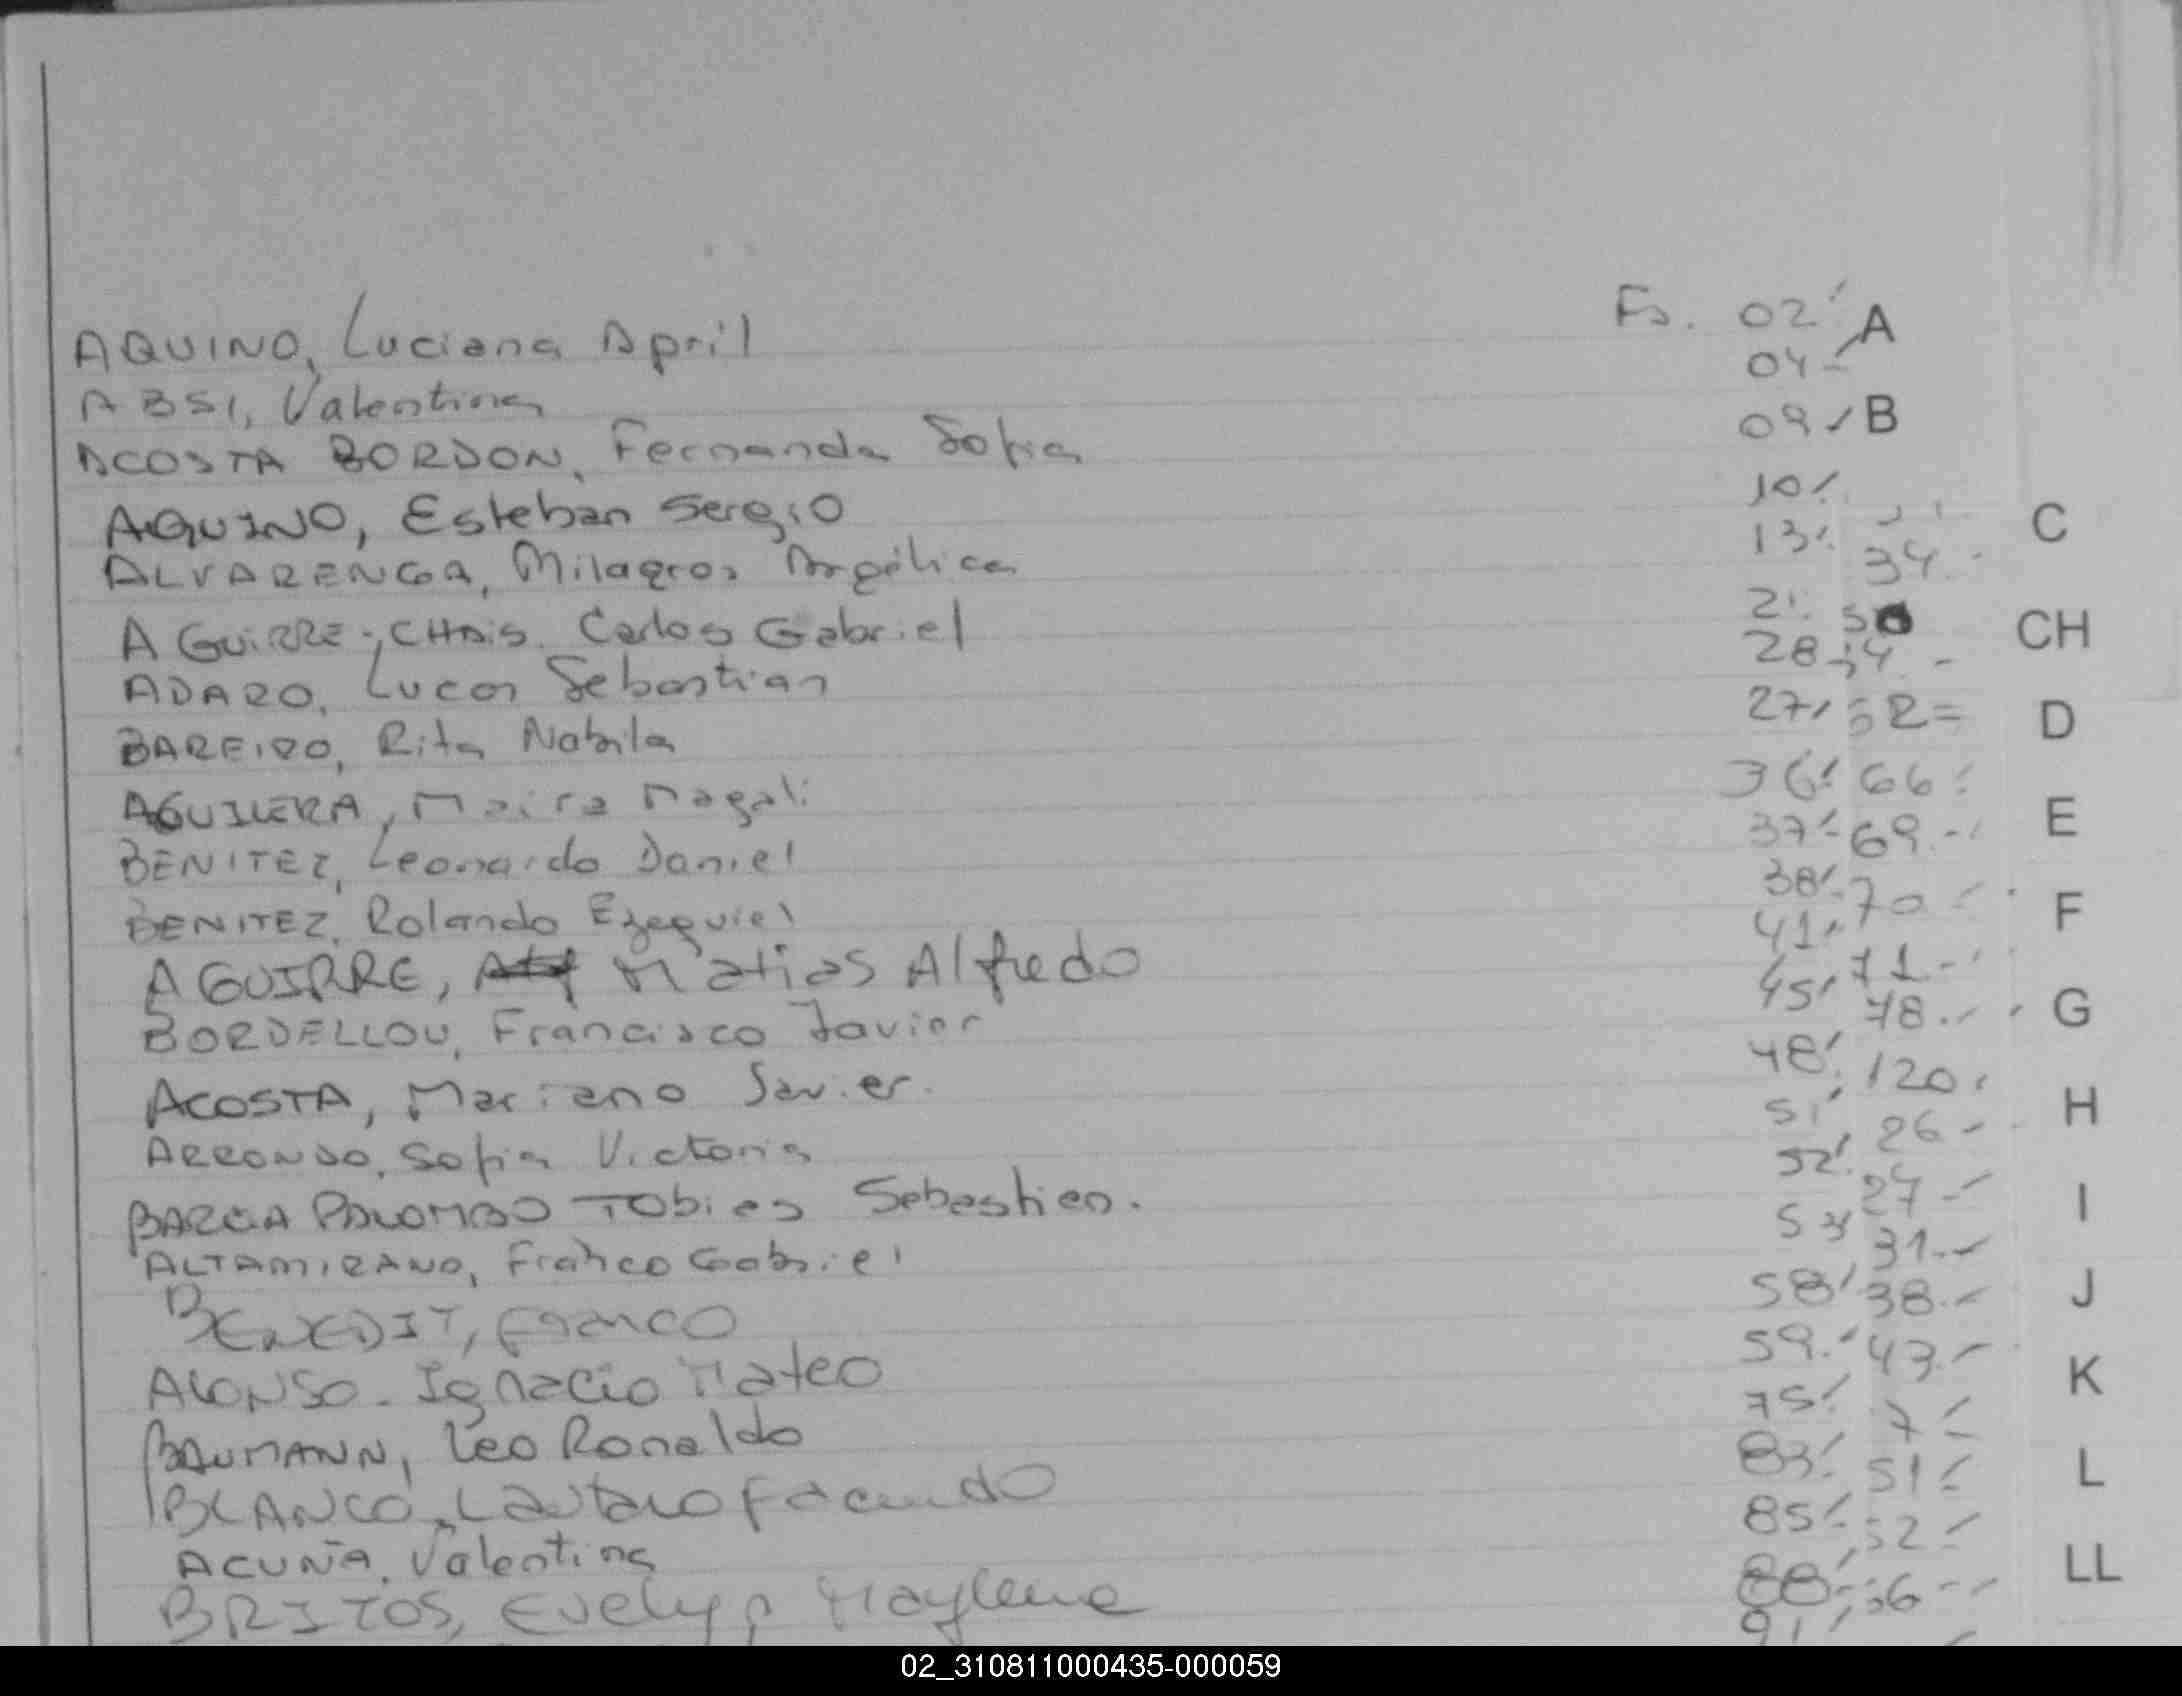 AQUINO, Luciana April Fs. 02 A
ABSI, Valentina 04
ACOSTA BORDON, Fernanda Sofia 09 B
AQUINO, Esteban Sergio 10
ALVARENGA, Milagros Angélica 13 34 C
AGUIRRE-CHAIS. Carlos Gabriel 21 CH
ADARO, Lucas Sebastian 28
BAREIRO, Rita Nabila 27 D
AGUILERA, Maira Magali 36 66
BENITEZ, Leonardo Daniel 37 69 E
BENITEZ, Rolando Ezequiel 38 70
AGUIRRE, Matias Alfredo 41 71 F
BORDELLOU, Francisco Javier 45 78 G
ACOSTA, Mariano Javier. 48 120
ARRONDO, Sofia Victoria 51 26 H
BARCIA PALOMBO Tobias Sebastian. 52 27
ALTAMIRANO, Franco Gabriel 53 31 I
BENEDIT, Franco 58 38 J
ALONSO. Ignacio Mateo 59 43
BAUMANN, Leo Ronaldo 75 K
BLANCO, Lautaro Facundo 83 51 L
ACUÑA, Valentina 85 52
BRITOS, Evelyn Maylene 88 LL
91
02_310811000435-000059